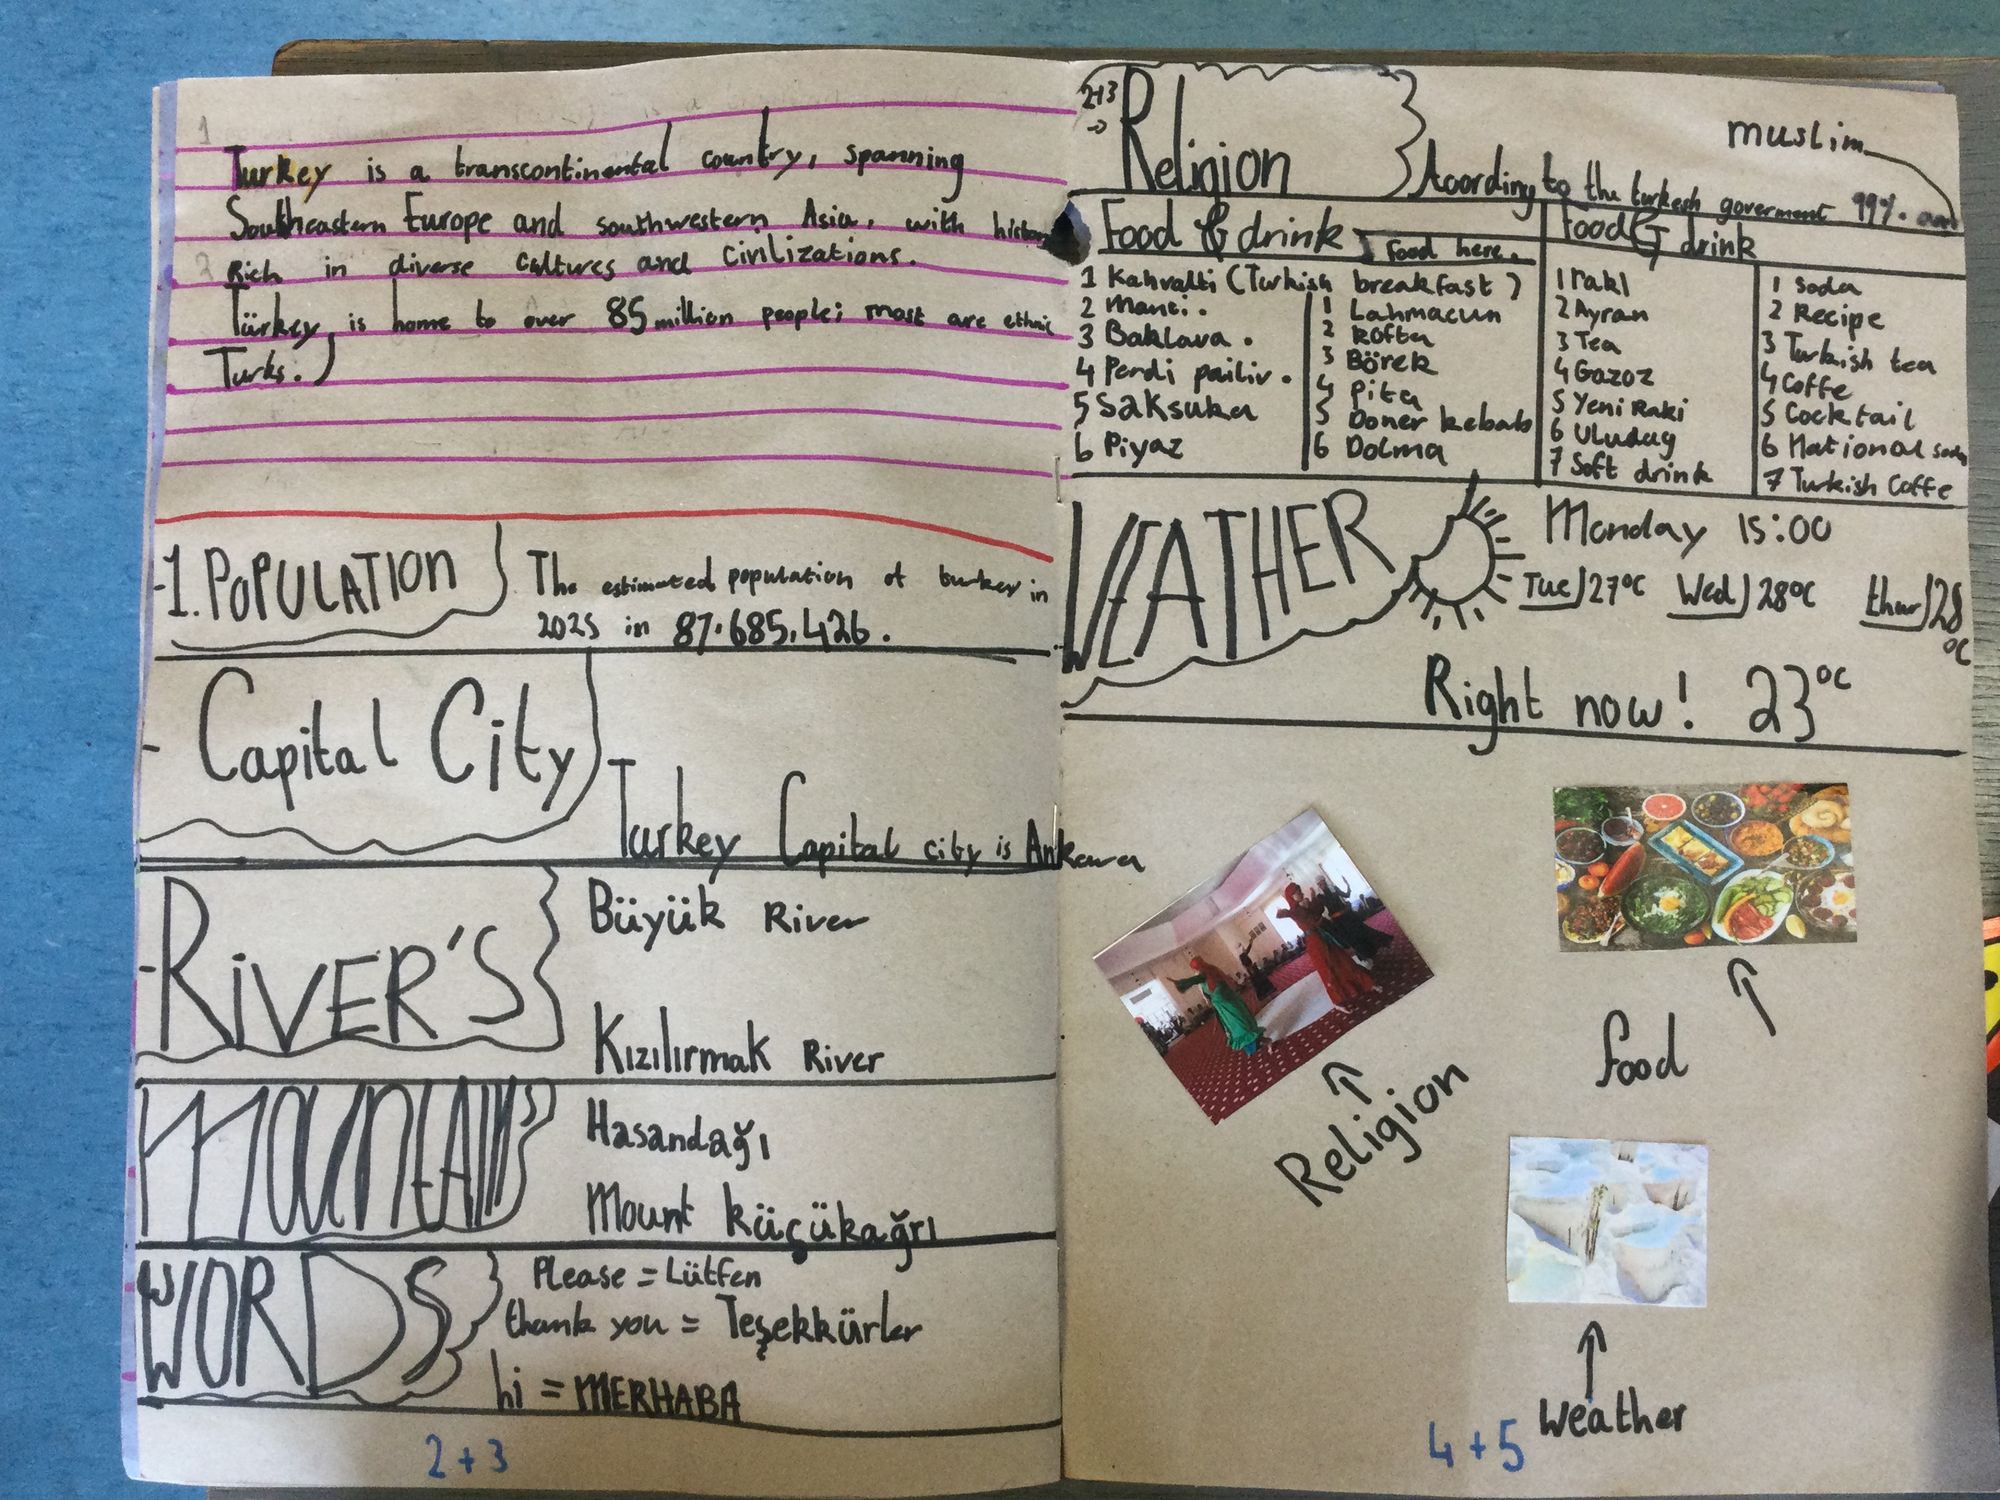 1
Turkey is a transcontinental country, spanning
Southeastern Europe and southwestern Asia, with history
2
Rich in diverse cultures and civilizations.
Türkey is home to over 85 million people; most are ethnic
Turks.
-1. POPULATION
The estimated population of turkey in
2025 in 87.685,426.
- Capital City
Turkey Capital city is Ankara
-RiVER'S
Büyük River
Kızılırmak River
MOUNTAINS
Hasandağı
Mount küçükağrı
WORDS
Please = Lütfen
thank you = Teşekkürler
hi = MERHABA
2 + 3
2+3
→
Religion
muslim
According to the turkish goverment 99%. are
Food & drink
Food here.
1 Kahvalti (Turkish breakfast)
2 Manti.
3 Baklava.
4 Perdi pailiv.
5 Saksuka
6 Piyaz
1 Lahmacun
2 Kofta
3 Börek
4 Pita
5 Doner kebab
6 Dolma
Food & drink
1 rakl
2 Ayran
3 Tea
4 Gazoz
5 Yeni Raki
6 Uludag
7 Soft drink
1 Soda
2 Recipe
3 Turkish tea
4 Coffe
5 Cocktail
6 National soda
7 Turkish Coffe
WEATHER
Monday 15:00
Tue) 27°C Wed) 28°C thur) 28
°C
Right now! 23°C
Religion
food
Weather
4 + 5